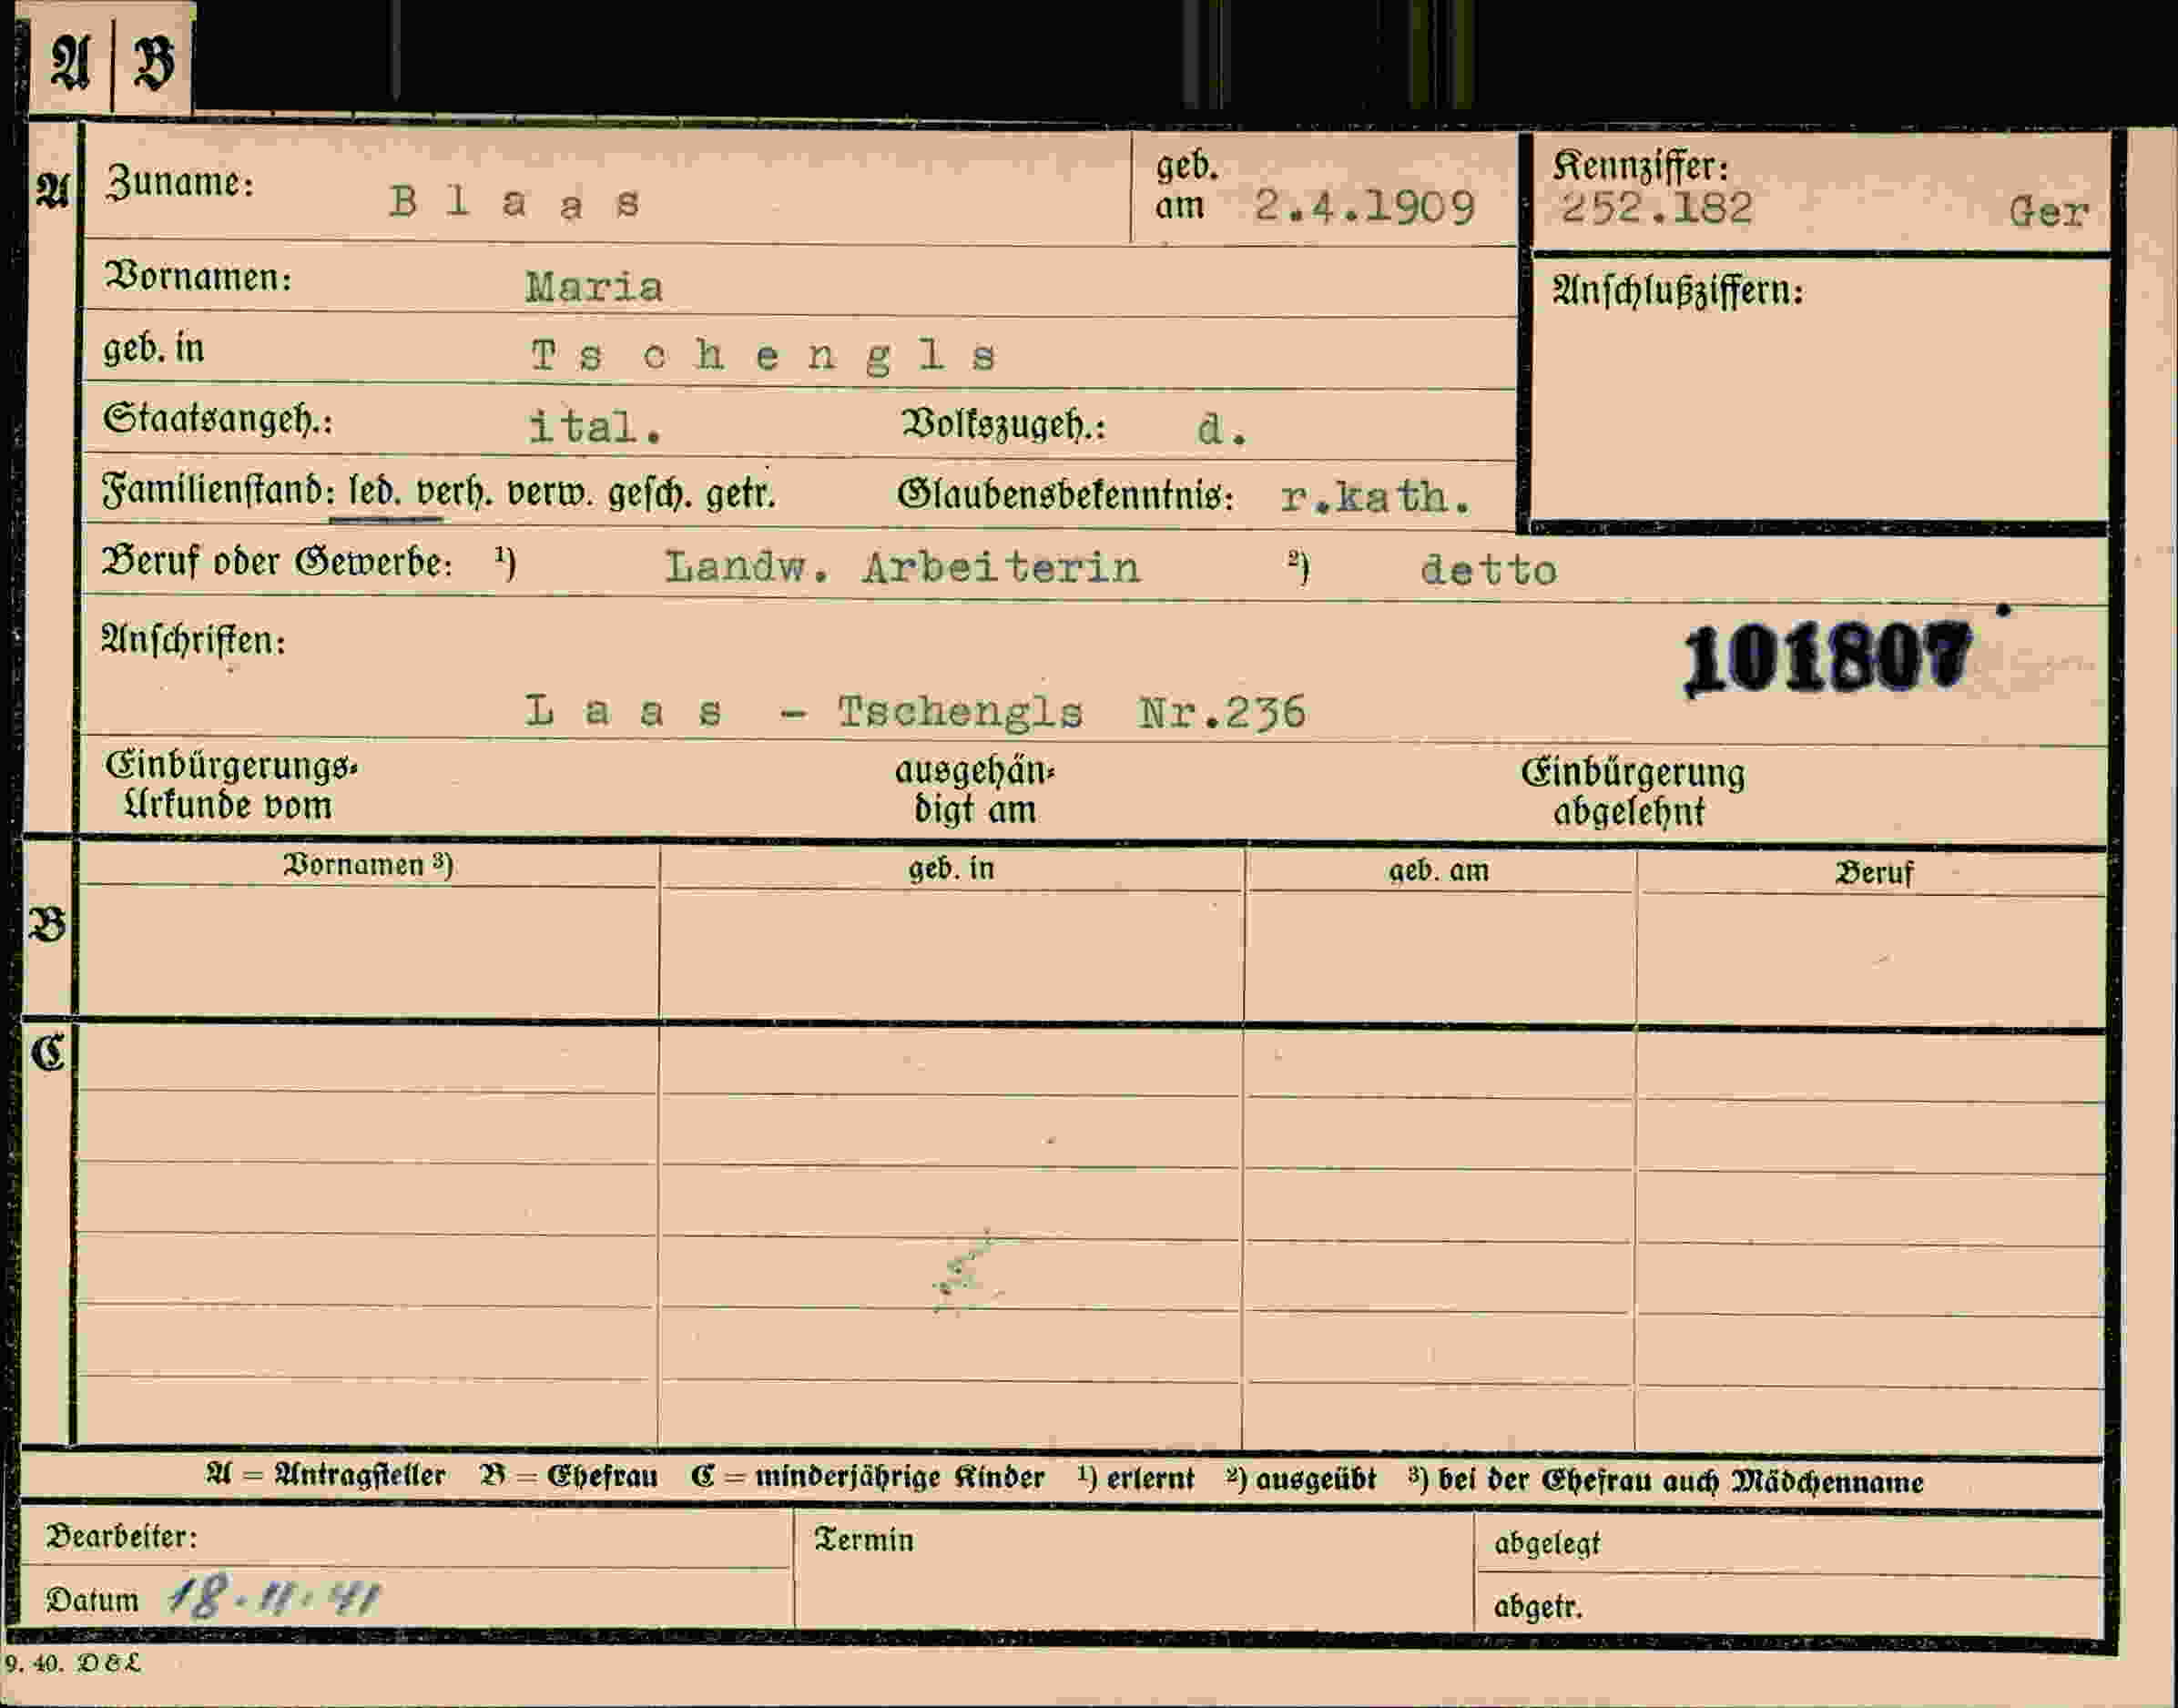 A B
A Zuname: B l a a s geb. am 2.4.1909 Kennziffer: 252.182 Ger
Vornamen: Maria Anschlußziffern:
geb. in T s c h e n g l s
Staatsangeh.: ital. Volkszugeh.: d.
Familienstand: led. verh. verw. gesch. getr. Glaubensbekenntnis: r.kath.
Beruf oder Gewerbe: ¹) Landw. Arbeiterin ²) detto
Anschriften: 101807
L a a s - Tschengls Nr.236
Einbürgerungs- ausgehän- Einbürgerung
Urkunde vom digt am abgelehnt
Vornamen ³) geb. in geb. am Beruf
B
C
A = Antragsteller B = Ehefrau C = minderjährige Kinder ¹) erlernt ²) ausgeübt ³) bei der Ehefrau auch Mädchenname
Bearbeiter: Termin abgelegt
Datum 18.11.41 abgetr.
9. 40. D & L